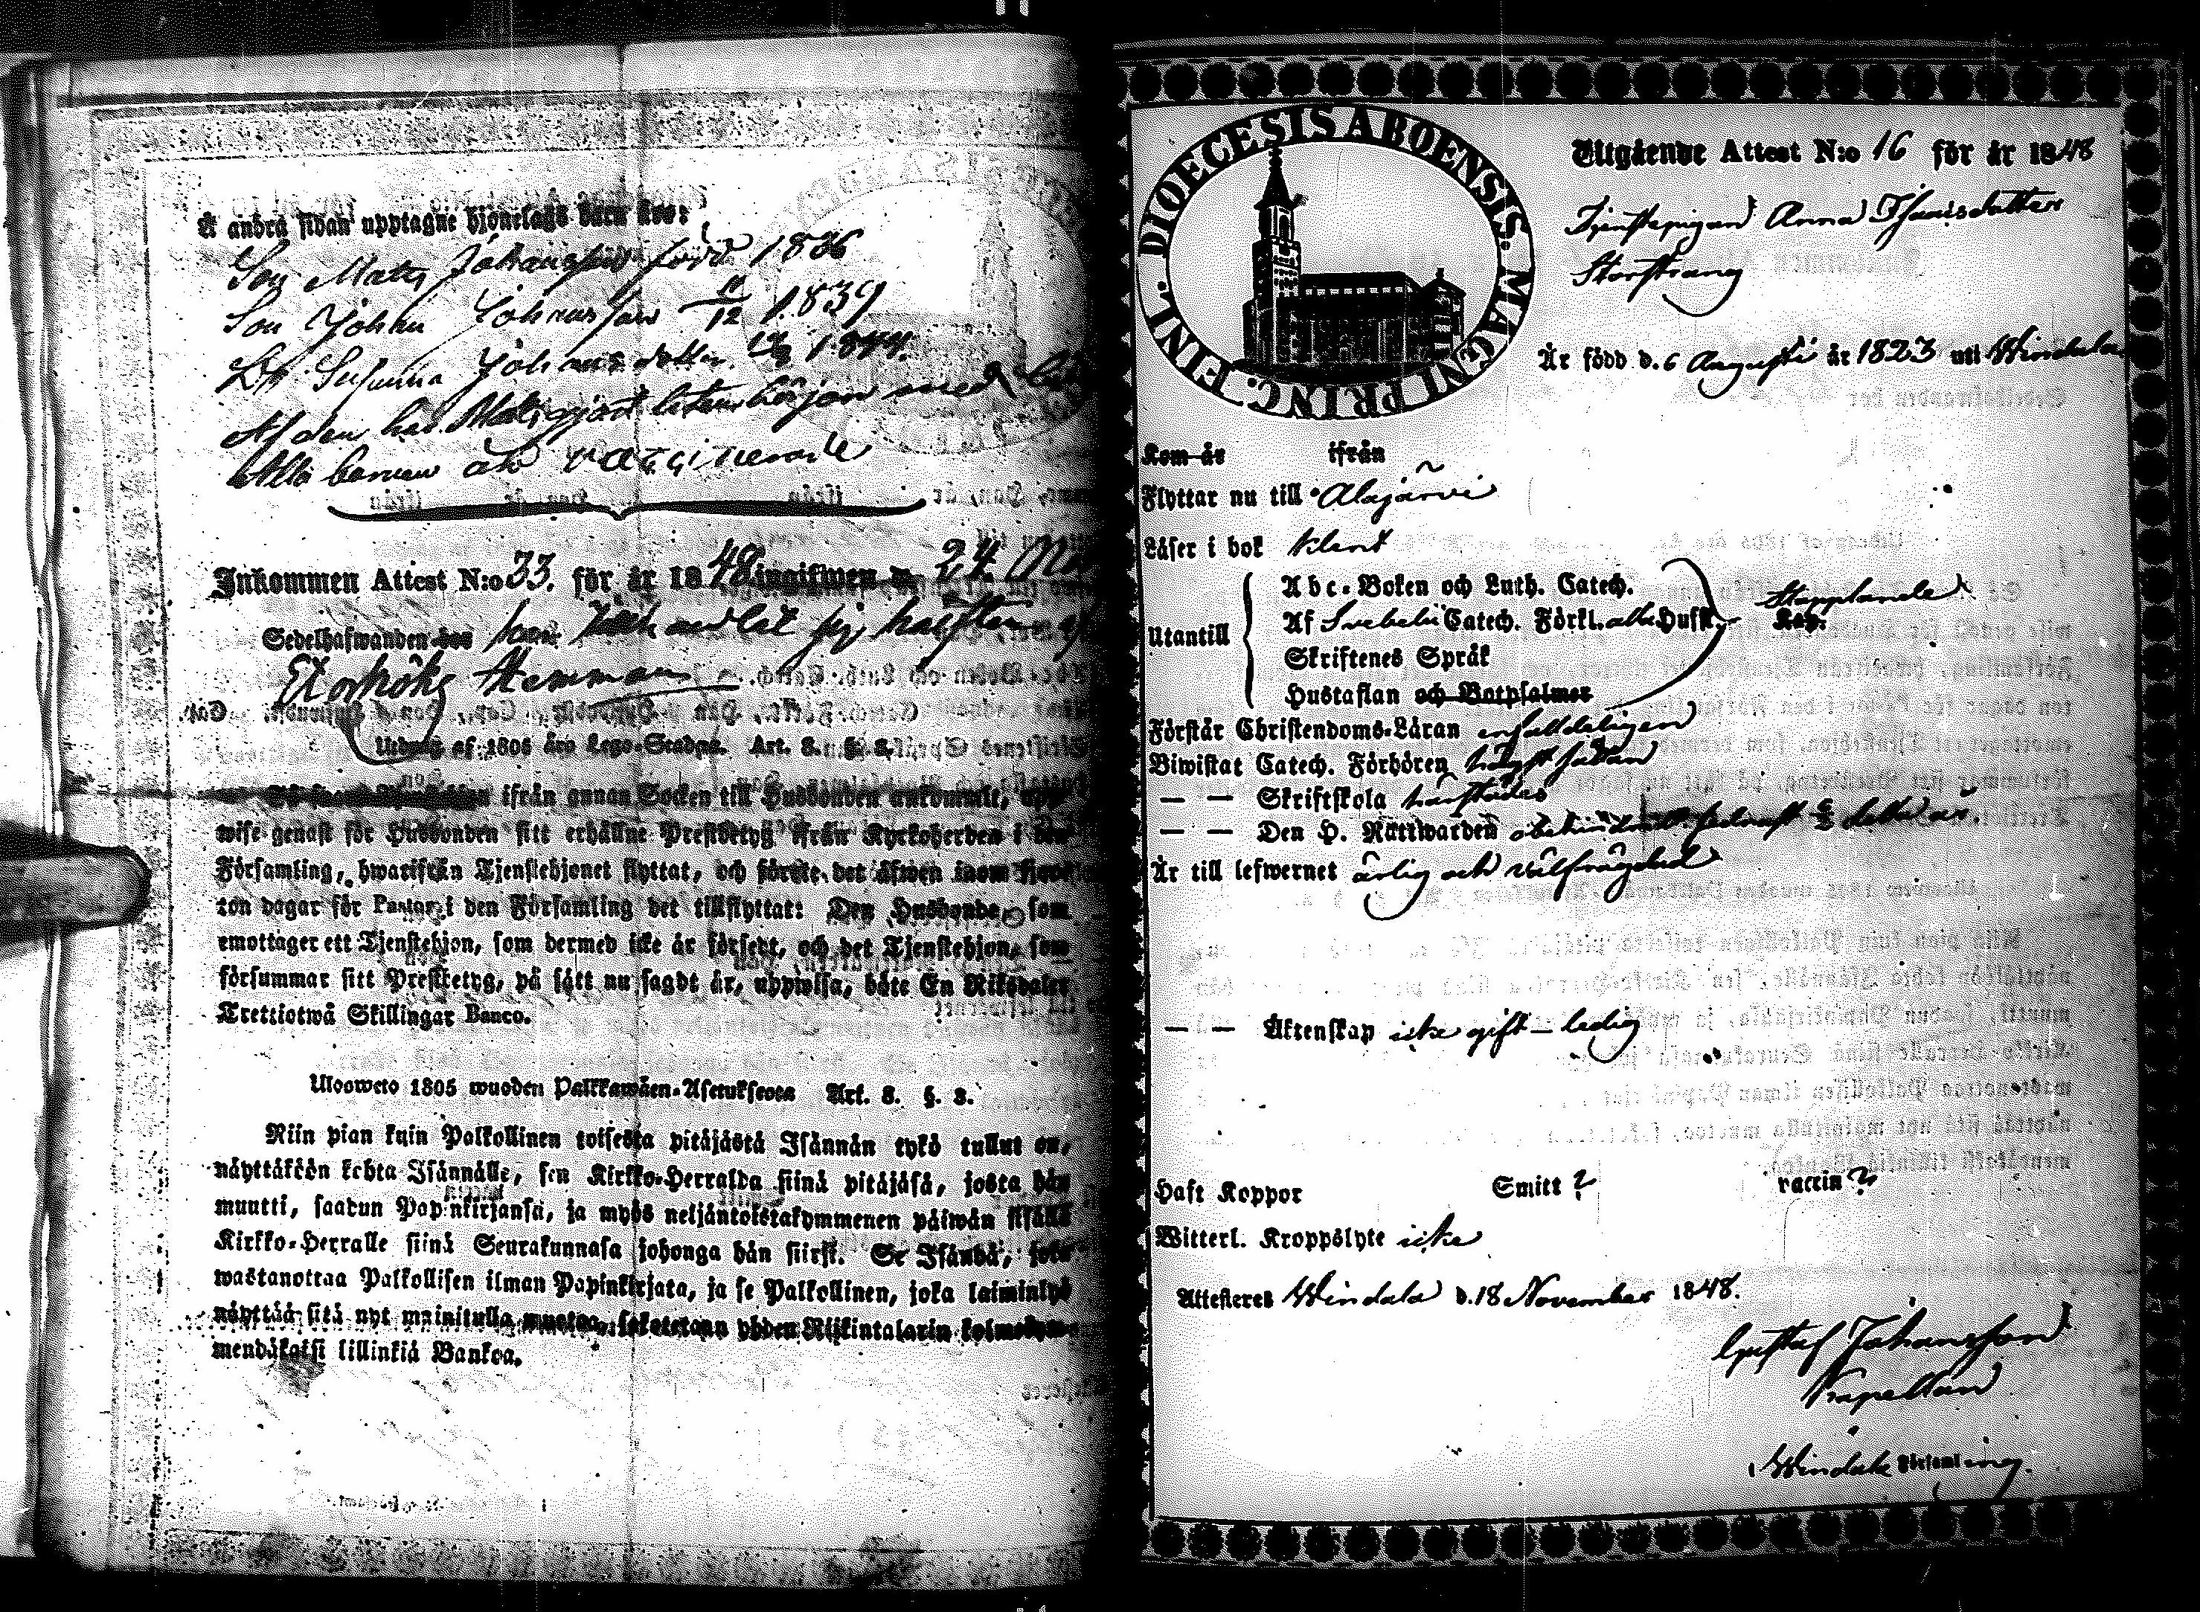 Å andra sidan upptagne hjonelags barn äro:
Son Mats Johansson född 1836
Son Johan Johansson 11/12 1839
Dr Susanna Johansdotter 1844.
Af dem har Mats gjort liten början med
Alla barnen äro vaccinerade
Inkommen Attest N:o 33. för år 1848 ingifwen d. 24.
Sedelhafwanden hos har sig hälften af
Hemman
Utdrag af 1805 års Lego-Stadga. Art. 8. §. 8.
ifrån annan Socken till Husbonden ankommit, upp-
wise genast för Husbonden sitt erhållne Prestbetyg ifrån Kyrkoherden i den
Församling, hwarifrån Tjenstehjonet flyttat, och förete det äfwen inom fjor-
ton dagar för Pastor i den Församling det tillflyttat: Den Husbonde, som
emottager ett Tjenstehjon, som dermed icke är försedt, och det Tjenstehjon, som
försummar sitt Prestbetyg, på sätt nu sagdt är, uppwisa, böte En Riksdaler
Trettiotwå Skillingar Banco.
Ulosweto 1805 wuoden Palkkawäen-Asetuksesta Art. 8. §. 8.
Niin pian kuin Palkollinen toisesta pitäjästä Isännän tykö tullut on,
näyttäköön kohta Isännälle, sen Kirkko-Herralta siinä pitäjäsä, josta hän
muutti, saadun Papinkirjansa, ja myös neljäntoistakymmenen päiwän sisällä
Kirkko-Herralle siinä Seurakunnasa johonga hän siirsi. Se Isändä, joka
wastanottaa Palkollisen ilman Papinkirjata, ja se Palkollinen, joka laiminlyö
näyttää sitä nyt mainitulla muotoa, sakotetaan yhden Riikintalarin kolmekym-
mendäkaksi killinkiä Bankoa.
DIOECESIS ABOENSIS. MAGNI PRINC. FINL.
Utgående Attest N:o 16 för år 1848
Tjenstepigan Anna Thomsdotter
Storstrang
Är född d. 6 Augusti år 1823 uti Windala
Kom år ifrån
Flyttar nu till Alajärvi
Läser i bok klent
Abc-Boken och Luth. Catech.
Utantill Af Svebelii Catech. Förkl. alla Hufst. Stapplande Kap.
Skriftenes Språk
Hustaflan och Botpsalmer
Förstår Christendoms-Läran enfaldeligen
Biwistat Catech. Förhören högst sådan
— — Skriftskola härstädes
— — Den H. Nattwarden obehindrad sednast detta år.
Är till lefwernet ärlig och välfrägdad
— — Äktenskap icke gift — ledig
Haft Koppor Smitt ? vaccin ?
Witterl. Kroppslyte icke
Attesteres Windala d. 18 November 1848.
Gustaf Johansson
Kapellan
i Windala Församling.